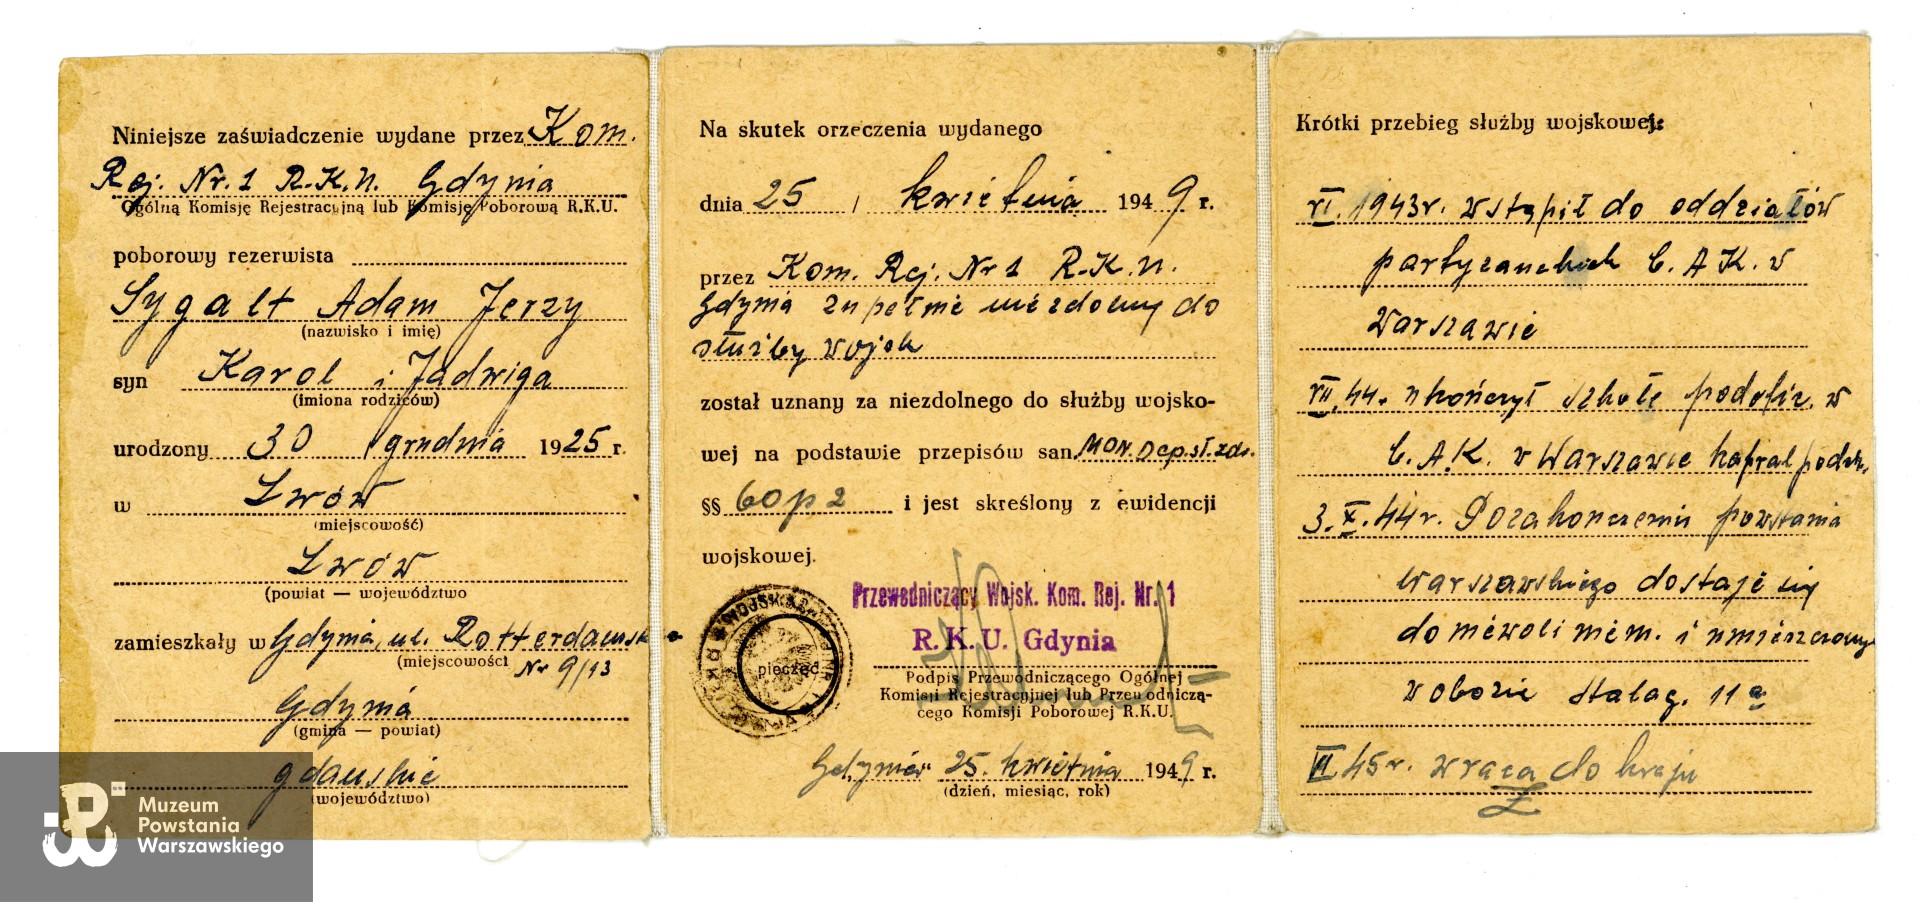 Niniejsze zaświadczenie wydane przez Kom.
Rej. Nr. 1 R.K.U. Gdynia
Ogólną Komisję Rejestracyjną lub Komisję Poborową R.K.U.
poborowy rezerwista
Sygalt Adam Jerzy
(nazwisko i imię)
syn Karol i Jadwiga
(imiona rodziców)
urodzony 30 / grudnia 1925 r.
w Lwów
(miejscowość)
Lwów
(powiat — województwo
zamieszkały w Gdynia, ul. Rotterdamska
(miejscowości Nr 9/13
Gdynia
(gmina — powiat)
gdańskie
(województwo)
Muzeum
Powstania
Warszawskiego
Na skutek orzeczenia wydanego
dnia 25 / kwietnia 1949 r.
przez Kom. Rej. Nr 1 R.K.U.
Gdynia zupełnie niezdolny do
służby wojsk
został uznany za niezdolnego do służby wojsko-
wej na podstawie przepisów san. MON. Dep. sł. zdr.
§§ 60 p 2 i jest skreślony z ewidencji
wojskowej.
Przewodniczący Wojsk. Kom. Rej. Nr. 1
R. K. U. Gdynia
pieczęć
Podpis Przewodniczącego Ogólnej
Komisji Rejestracyjnej lub Przewodniczą-
cego Komisji Poborowej R.K.U.
Gdynia 25. kwietnia 1949 r.
(dzień, miesiąc, rok)
Krótki przebieg służby wojskowej:
VI. 1943r. wstąpił do oddziałów
partyzanckich b. A K. w
Warszawie
VII. 44. ukończył szkołę podofic. w
b. A.K. w Warszawie kapral podch.
3. X. 44r. Po zakończeniu powstania
warszawskiego dostaje się
do niewoli niem. i umieszczony
w obozie stalag. 11 a
45r. wraca do kraju